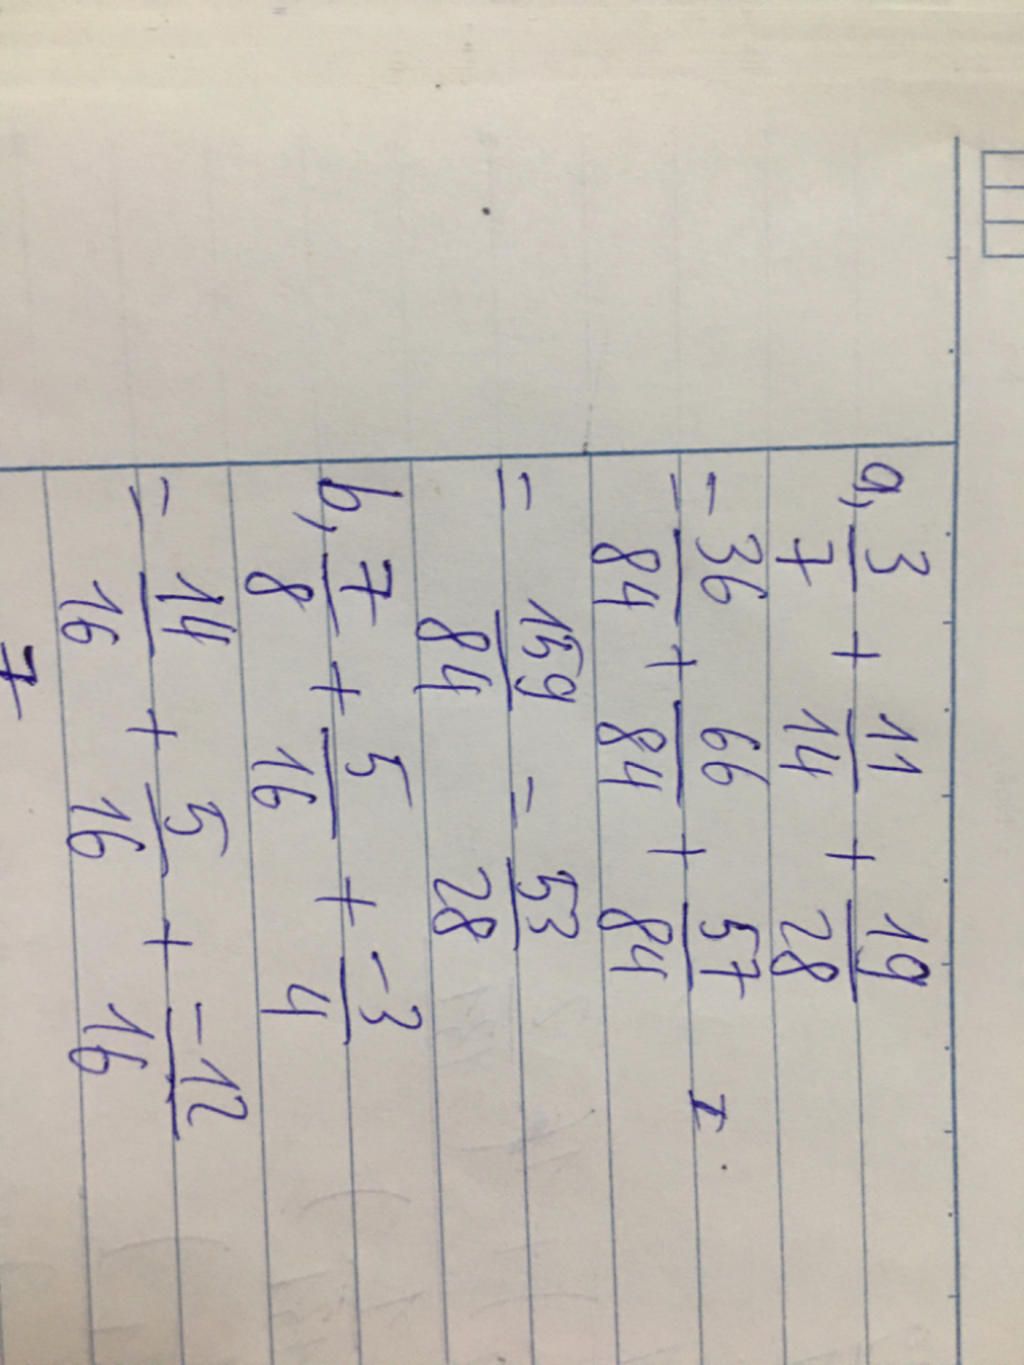 a, 3/7 + 11/14 + 19/28
= 36/84 + 66/84 + 57/84
= 159/84 = 53/28
b, 7/8 + 5/16 + -3/4
= 14/16 + 5/16 + -12/16
7